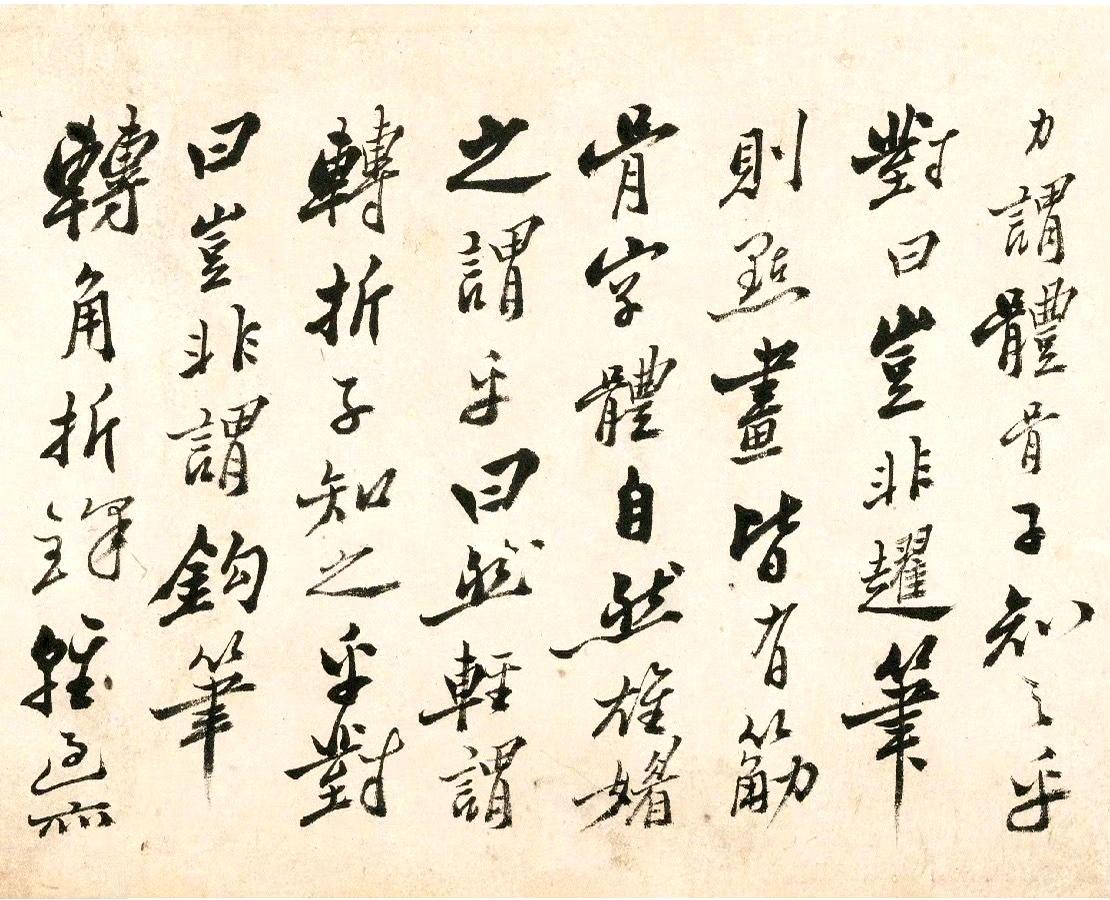 力謂體骨子知之乎
對曰豈非趯筆
則點畫皆有筋
骨字體自然雄媚
之謂乎曰然輕謂
轉折子知之乎對
曰豈非謂鈎筆
轉角折鋒輕過亦